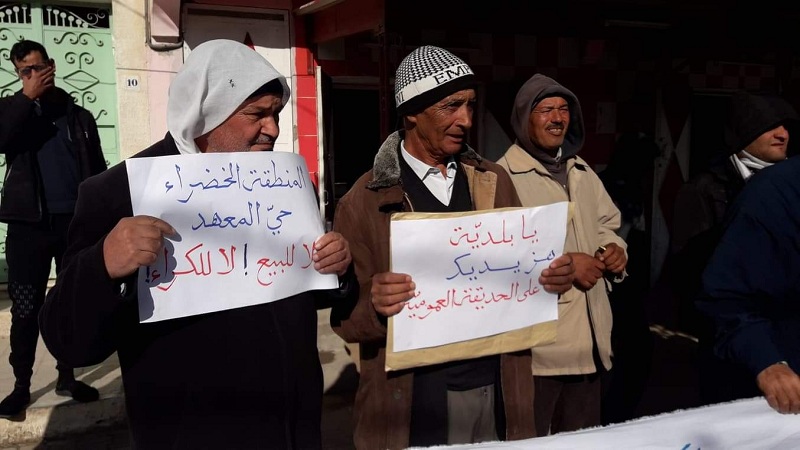 10
المنطقة الخضراء
حيّ المعهد
لا للبيع! لا للكراء!
EM
يا بلديّة
هز يديك
على الحديقة العموميّة